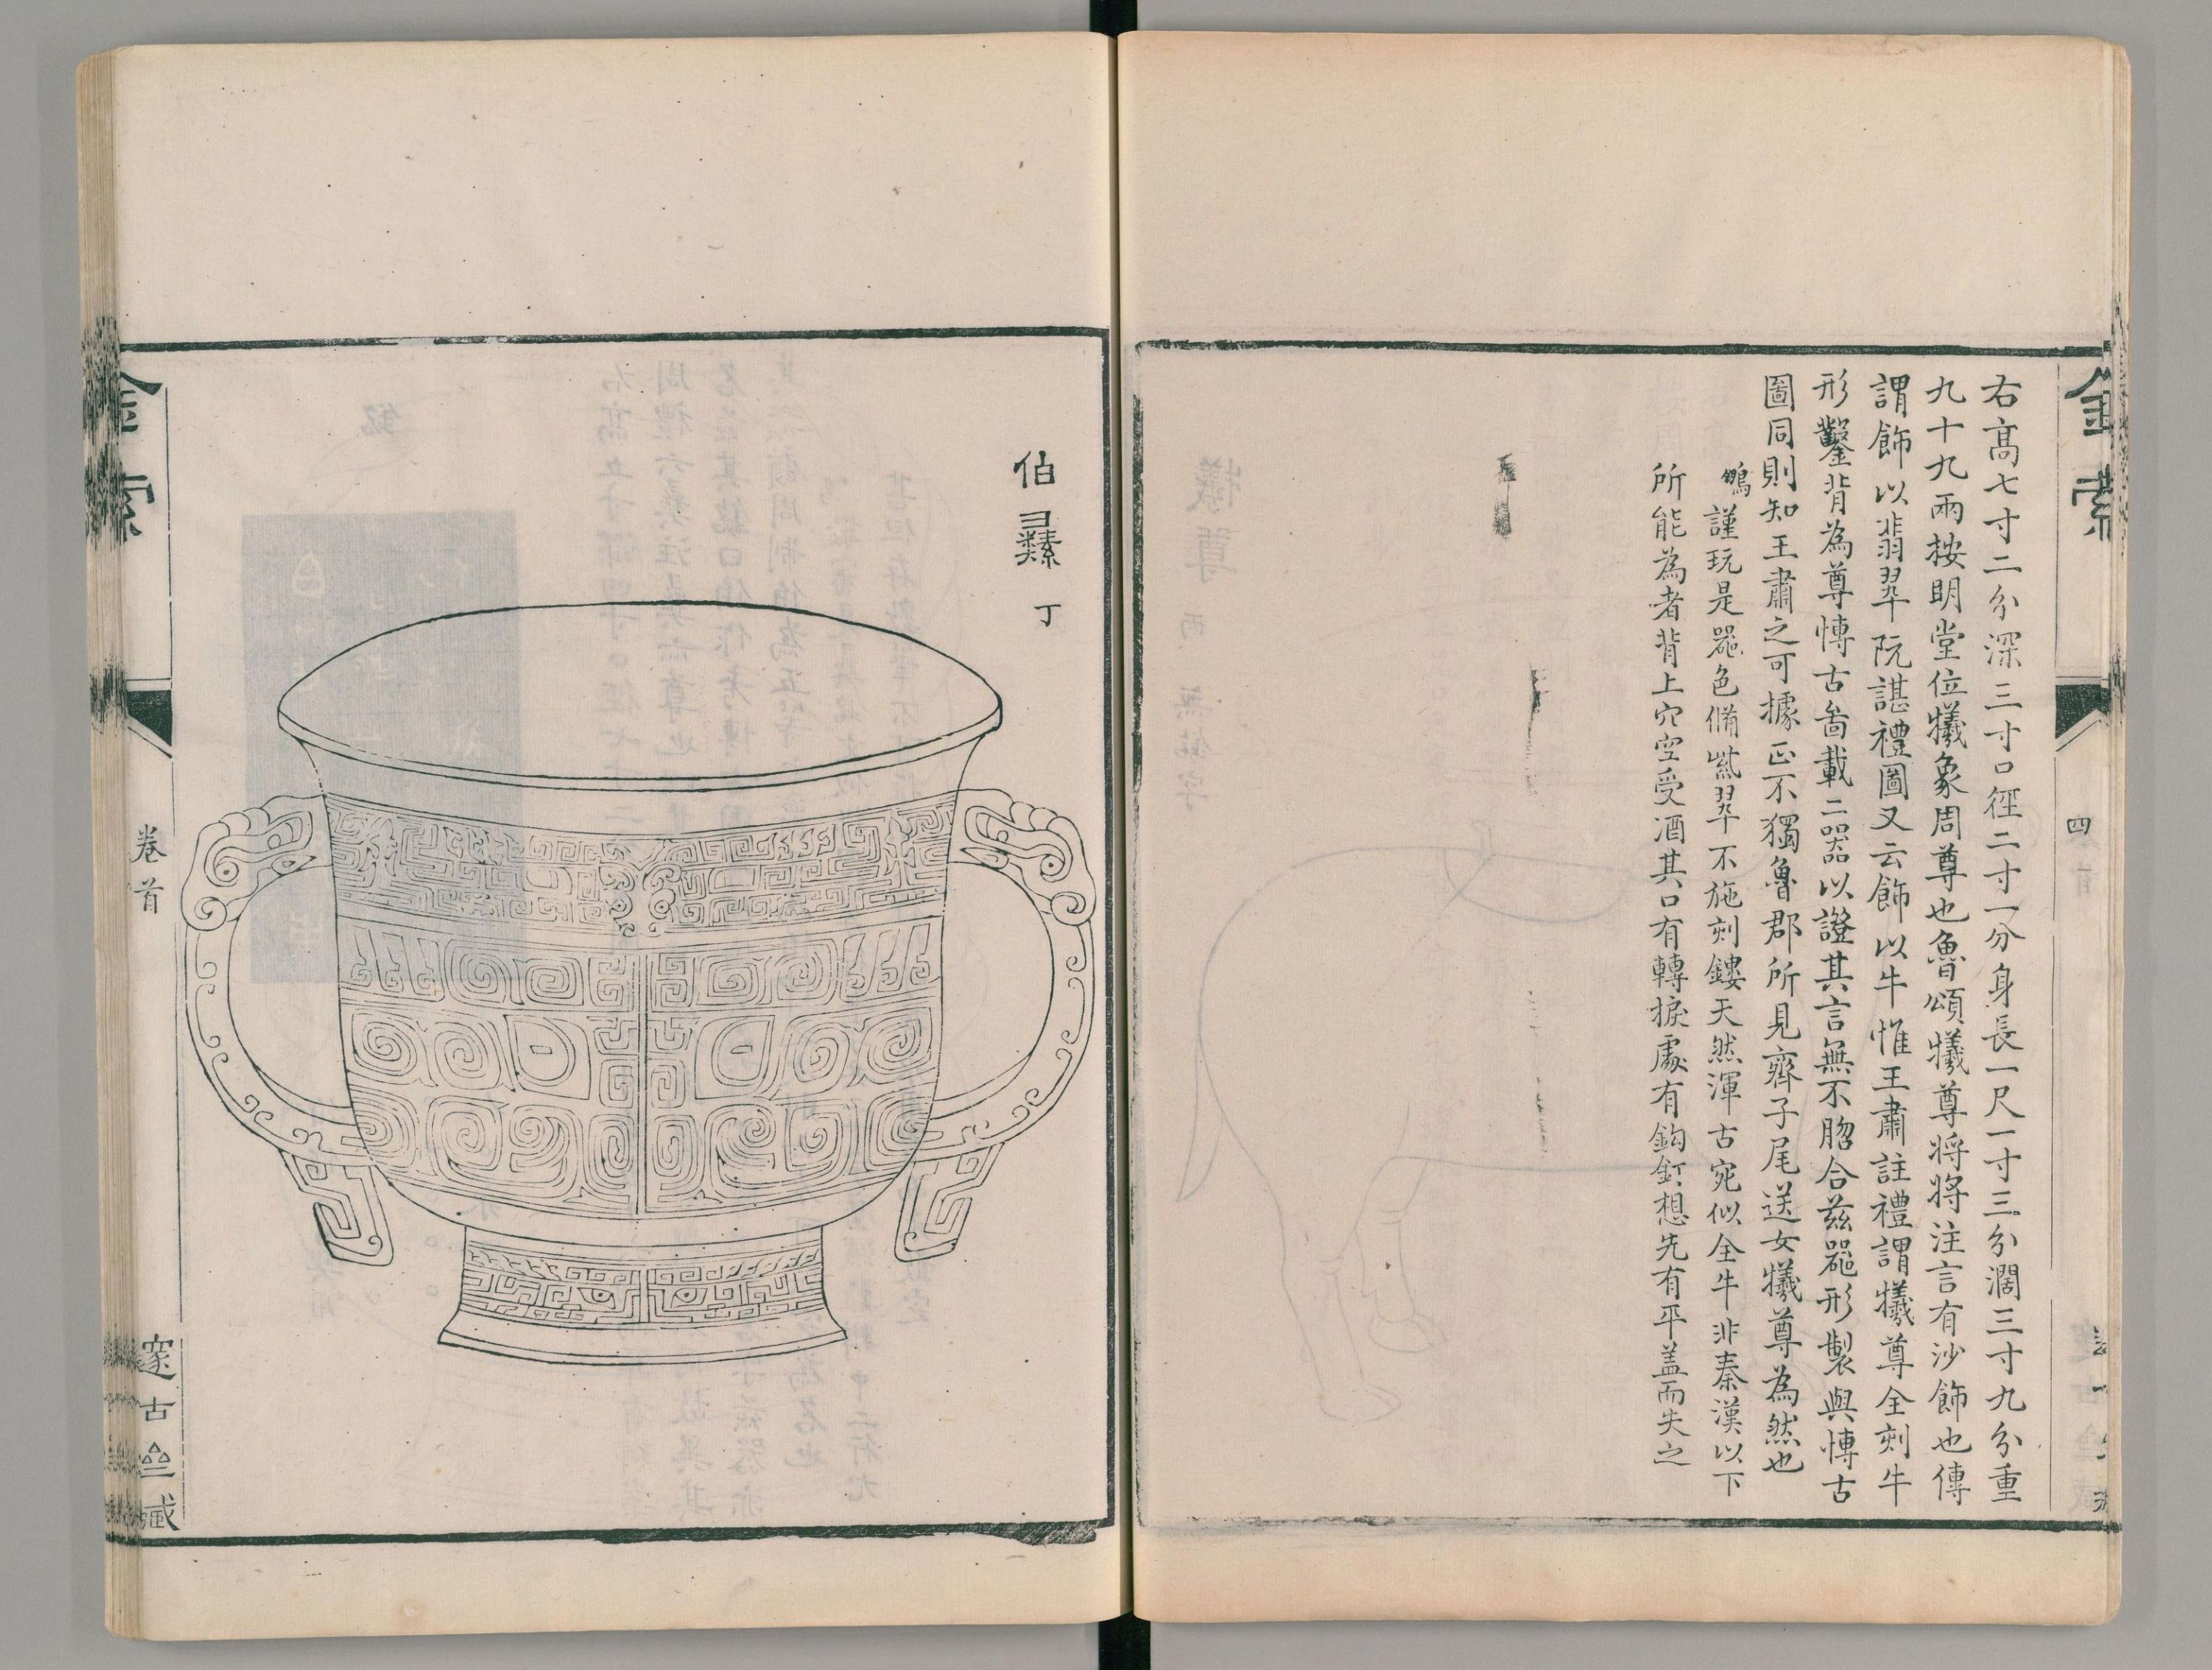 金索
四
右高七寸二分深三寸口徑二寸一分身長一尺一寸三分濶三寸九分重
九十九兩按明堂位犧象周尊也魯頌犧尊將將注言有沙飾也傳
謂飾以翡翠阮諶禮圖又云飾以牛惟王肅註禮謂犧尊全刻牛
形鑿背為尊愽古啚載二器以證其言無不脗合兹噐形製與愽古
圖同則知王肅之可據正不獨魯郡所見齊子尾送女犧尊為然也
鵬謹玩是噐色備紫翠不施刻鏤天然渾古宛似全牛非秦漢以下
所能為者背上穴空受酒其口有轉捩處有鈎釘想先有平盖而失之
伯彛 丁
金索
卷首
邃古亝藏